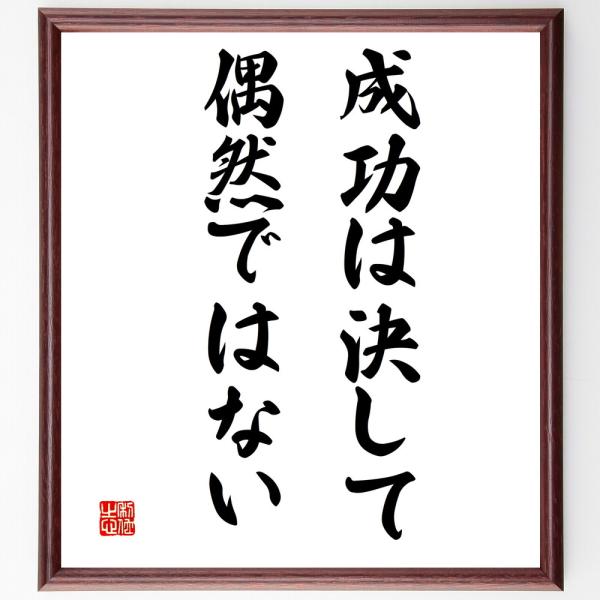 成功は決して
偶然ではない